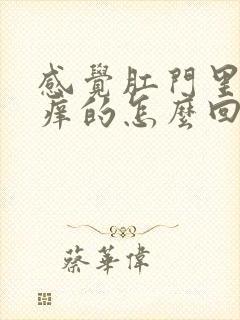 感覺肛門里
痒的怎麼回
蔡華偉